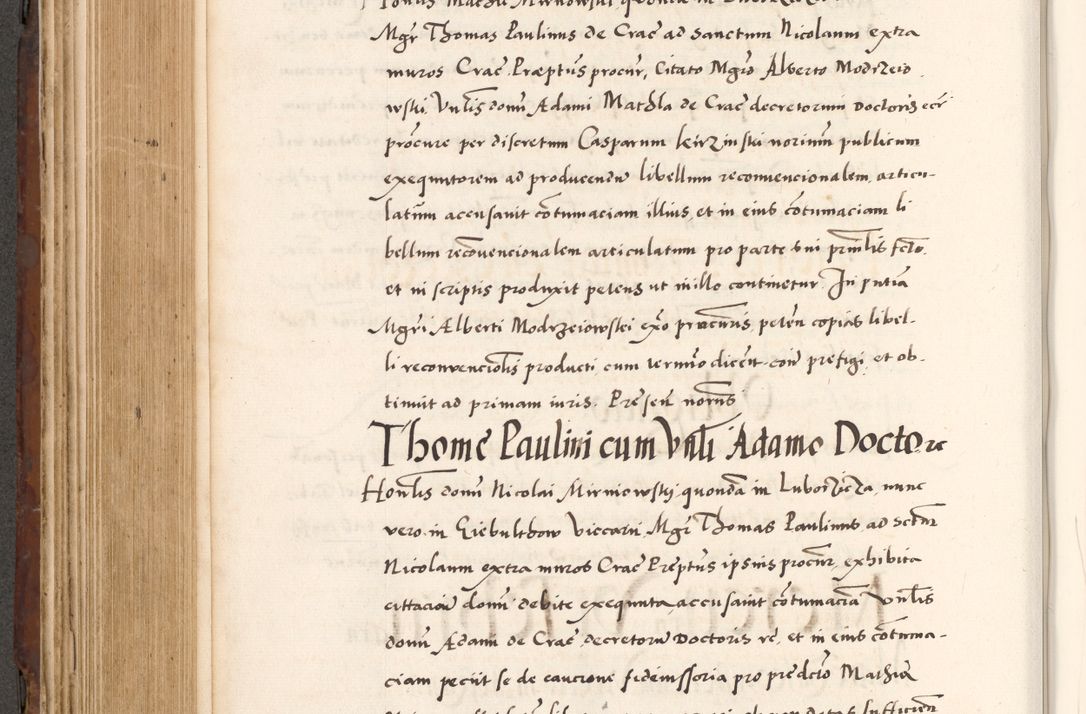 Mgr Thomas Paulinus de Crac ad sanctum Nicolaum extra
muros Crac Præptus procur, Citato Mgro Alberto Modrzeio
wski Vnlis domi Ædami de Crac decretorum Doctoris
procure per discretum Casparum norium publicum
exequutorem ad producendu libellum reconvencionalem, articu-
latum accusauit cōtumaciam illius, et in eius cōtumaciam li
bellum recōvencionalem articulatum pro parte sui prnlis fcto
et in scriptis produxit petens ut in illo continetur. In pntia
Mgri Ælberti Modrzeiowskei exo procuris, peten copias libel-
li reconvencionlis producti, cum termio dicen con prefigi, et ob-
tinuit ad primam iuris. Presen norus
Thome Paulini cum Vnli Adamo Doctore
Honlis domi Nicolai Mirniowskij quondā in Luborzicza, nunc
vero in Giebulthow Viccarii, Mgr Thomas Paulinus, ad sctum
Nicolaum extra muros Crac Preptus ipsius procur, exhibita
cittacioī domī debite exequuta accusauit cōtumaciā Vnlis
domi Ædami de Crac decretoru Doctoris rc, et in eius cōtuma-
ciam peciit se de caucione fideiussoria pro predcto Mathia